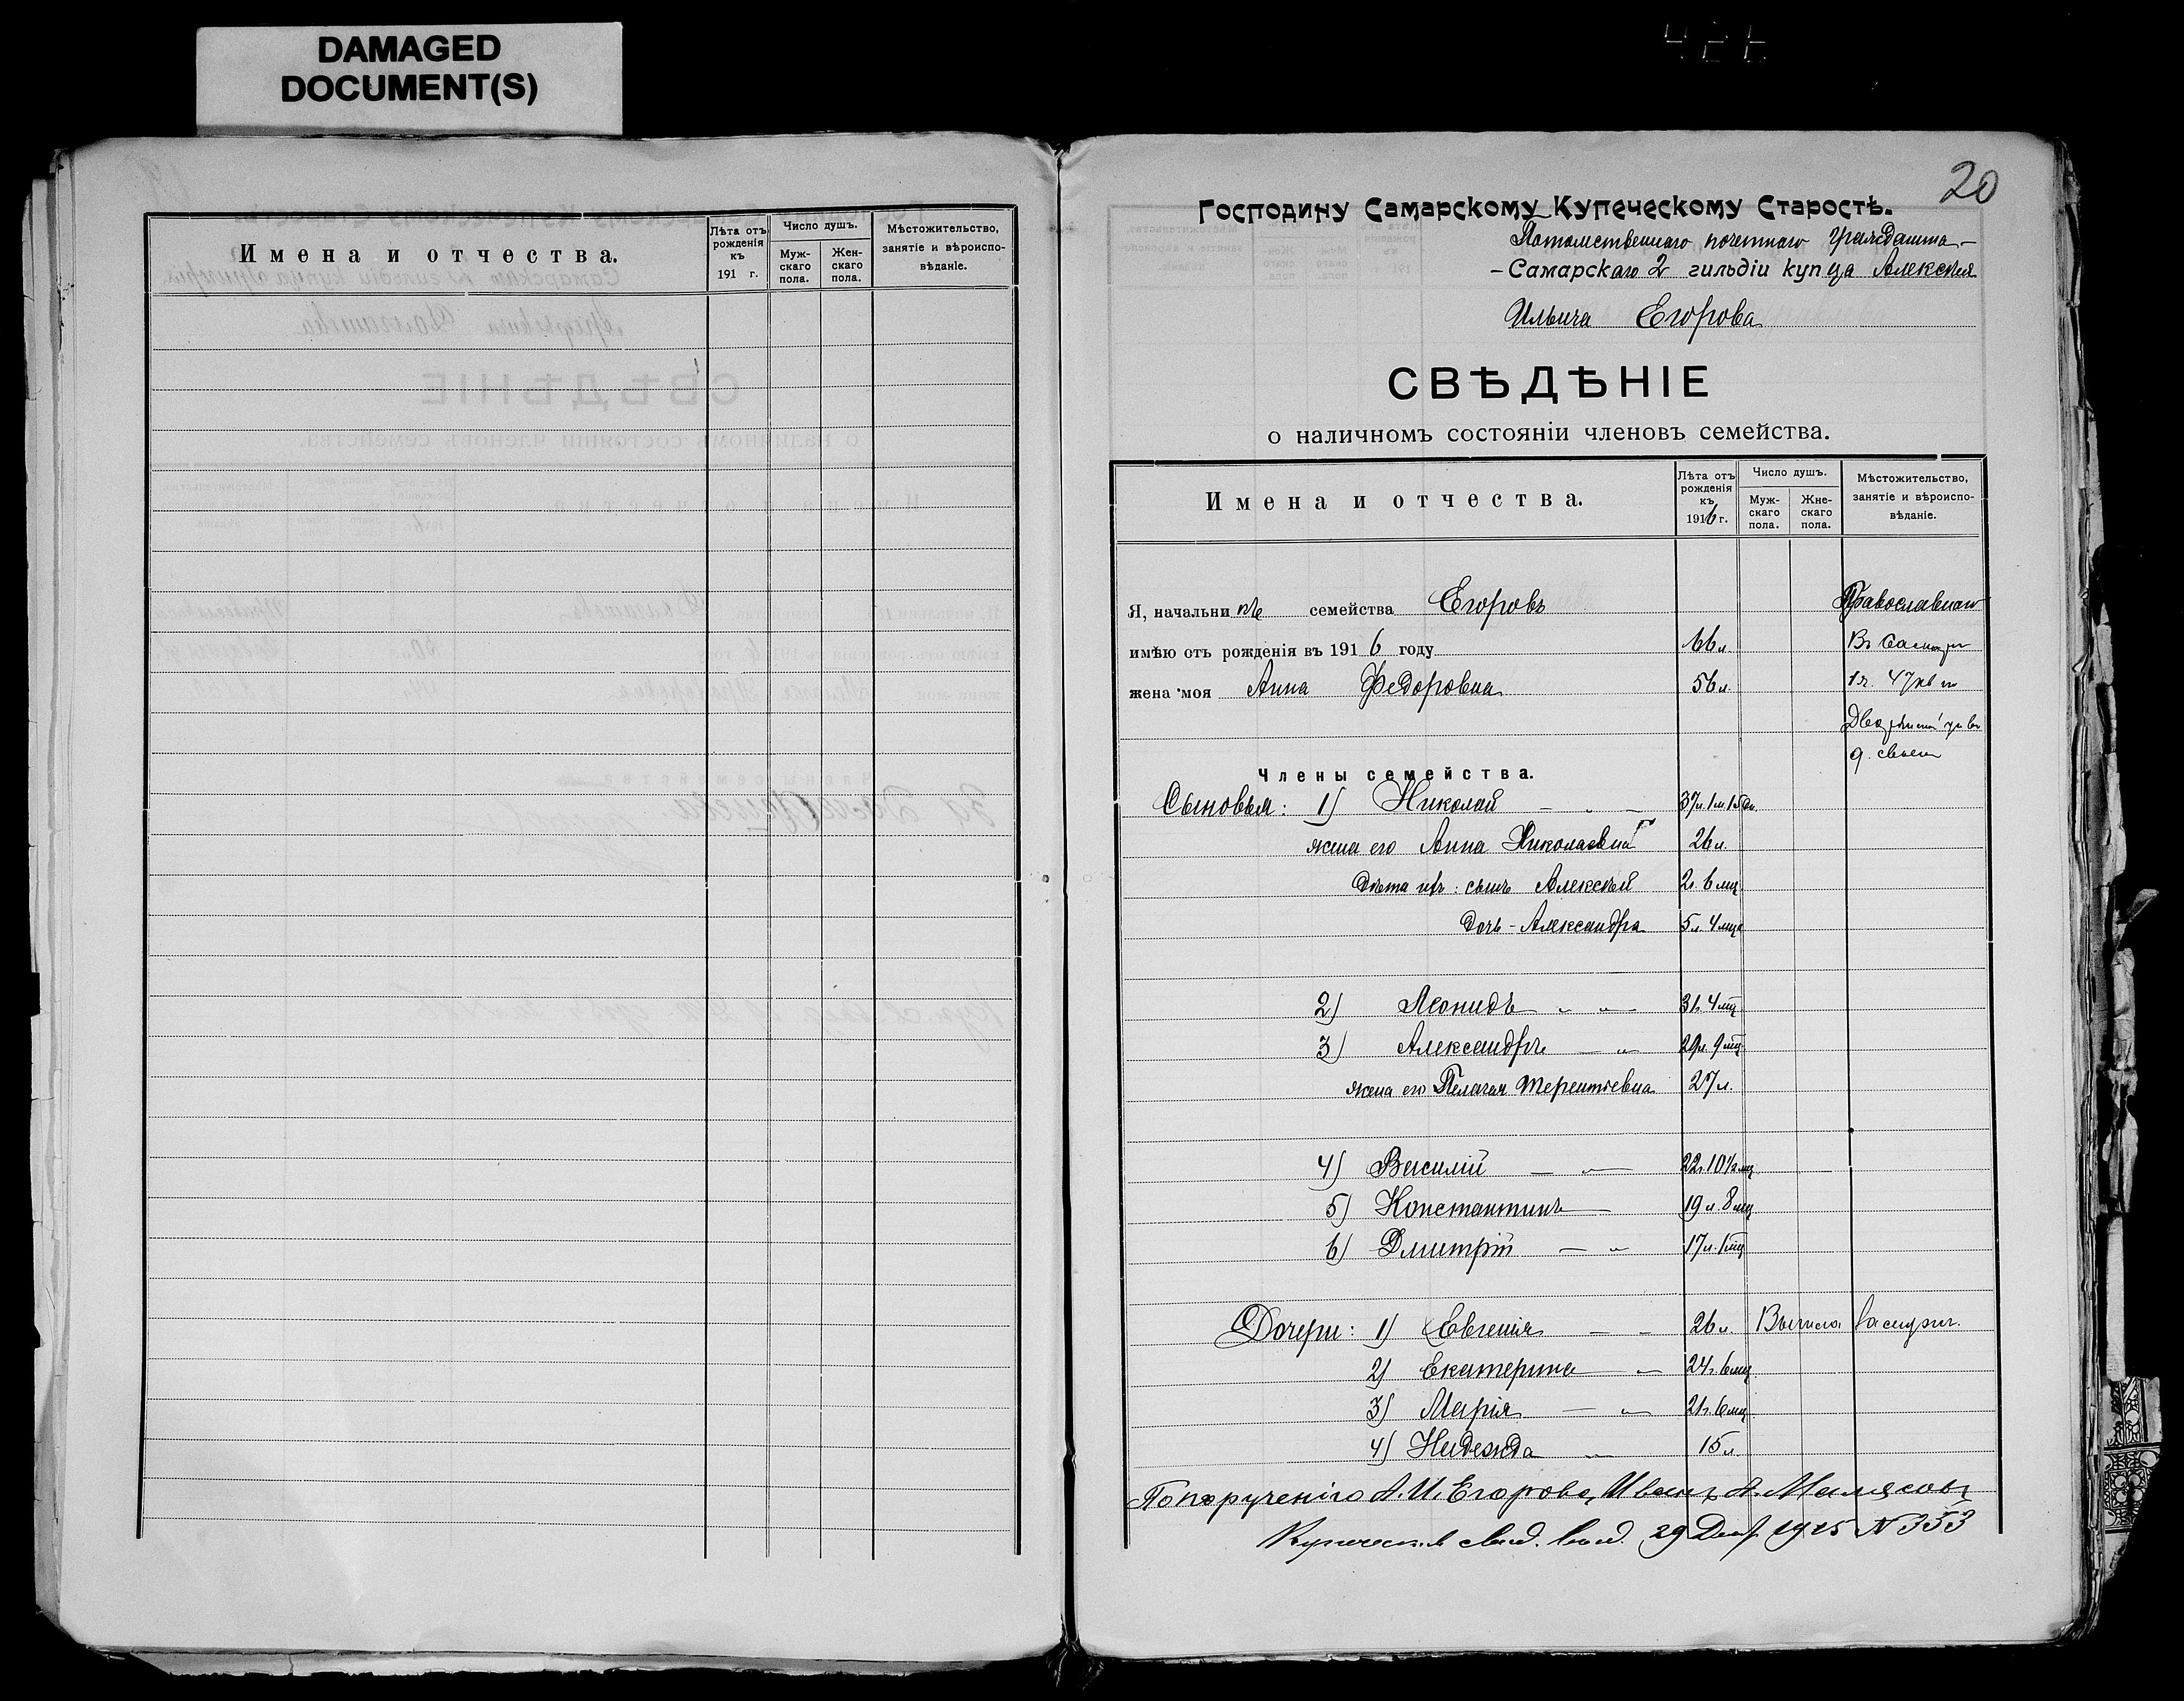 DAMAGED
DOCUMENT(S)
Имена и отчества.
Лѣта отъ рожденія къ 191 г.
Число душъ.
Мужскаго пола.
Женскаго пола.
Мѣстожительство, занятіе и вѣроисповѣданіе.
20
Господину Самарскому Купеческому Старостѣ.
Потомственнаго почетнаго гражданина –
– Самарскаго 2 гильдіи купца Алексѣя
Ильича Егорова
СВѢДѢНІЕ
о наличномъ состояніи членовъ семейства.
Имена и отчества.
Лѣта отъ рожденія къ 1916 г.
Число душъ.
Мужскаго пола.
Жнескаго пола.
Мѣстожительство, занятіе и вѣроисповѣданіе.
Я, начальникъ семейства Егоровъ Православнаго
имѣю отъ рожденія въ 1916 году 66 л. Въ Самарѣ
жена моя Анна Федоровна 56 л. 1 ч. 47 кв
д. своем
Члены семейства.
Сыновья: 1) Николай — " — 37 л. 1 м. 15 дн.
жена его Анна Николаевна 26 л.
Дѣти ихъ: сынъ Алексѣй 2 г. 6 мц.
дочь – Александра 5 л. 4 мца
2) Леонидъ " " — 31 г. 4 мц.
3) Александръ — " 29 л. 9 мц.
жена его Пелагея Терентьевна 27 л.
4) Василій — " — 22 г. 10½ мц
5) Константинъ — 19 л. 8 мц
6) Дмитрій — " 17 л. 1 мц
Дочери: 1) Евгенія — – 26 л. Вышла замужъ.
2) Екатерина — " 24 г. 6 мц
3) Марія — " 21 г. 6 мц
4) Надежда " 15 л.
По порученію А. И. Егорова, Иванъ А. Малясовъ
Купеческ. свид. выд. 29 Дек. 1915 N 333